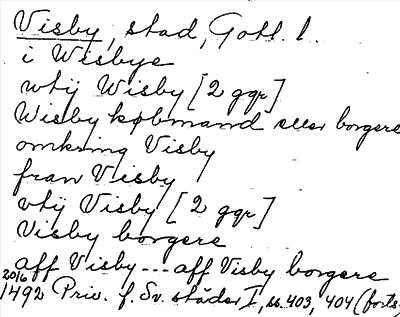 Visby, stad, Gotl. l.
i Wisbye
wtij Wisby [2 ggr]
Wisby købmand eller borgere
omkring Visby
fran Visby
vtij Visby [2 ggr]
Visby borgere
aff Visby--- aff Visby borgere
2016
1492 Priv. f. Sv. städer I, ss. 403, 404 (forts.